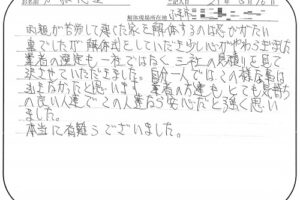 解体現場所在地
両親が苦労して建てた家を解体するのは心がいたい
事でしたが解体式をしていただき少し心がやわらぎました
業者の選定も一社ではなく三社の見積りを見て
決させていただきました。自分一人ではこの様な事は
出来なかったと思います。業者の方達も、とても気持ち
の良い人達でこの人達なら安心だと強く思い
ました。
本当に有難うございました。